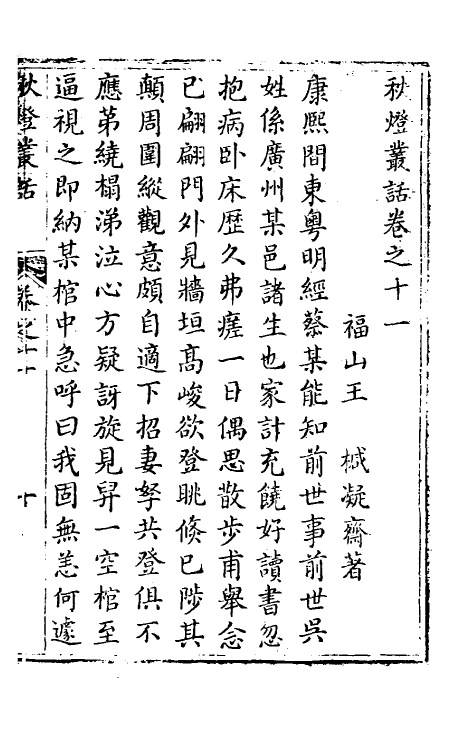 秋燈叢話卷之十一
福山王　椷凝齋著
康熙間東粵明經蔡某能知前世事前世吳
姓係廣州某邑諸生也家計充饒好讀書忽
抱病卧床歴久弗瘥一日偶思散步甫舉念
已翩翩門外見牆垣高峻欲登眺倏已陟其
顛周圍縱觀意頗自適下招妻孥共登俱不
應第繞榻涕泣心方疑訝旋見舁一空棺至
逼視之即納某棺中急呼曰我固無恙何遽
秋燈叢話　卷之十一　十